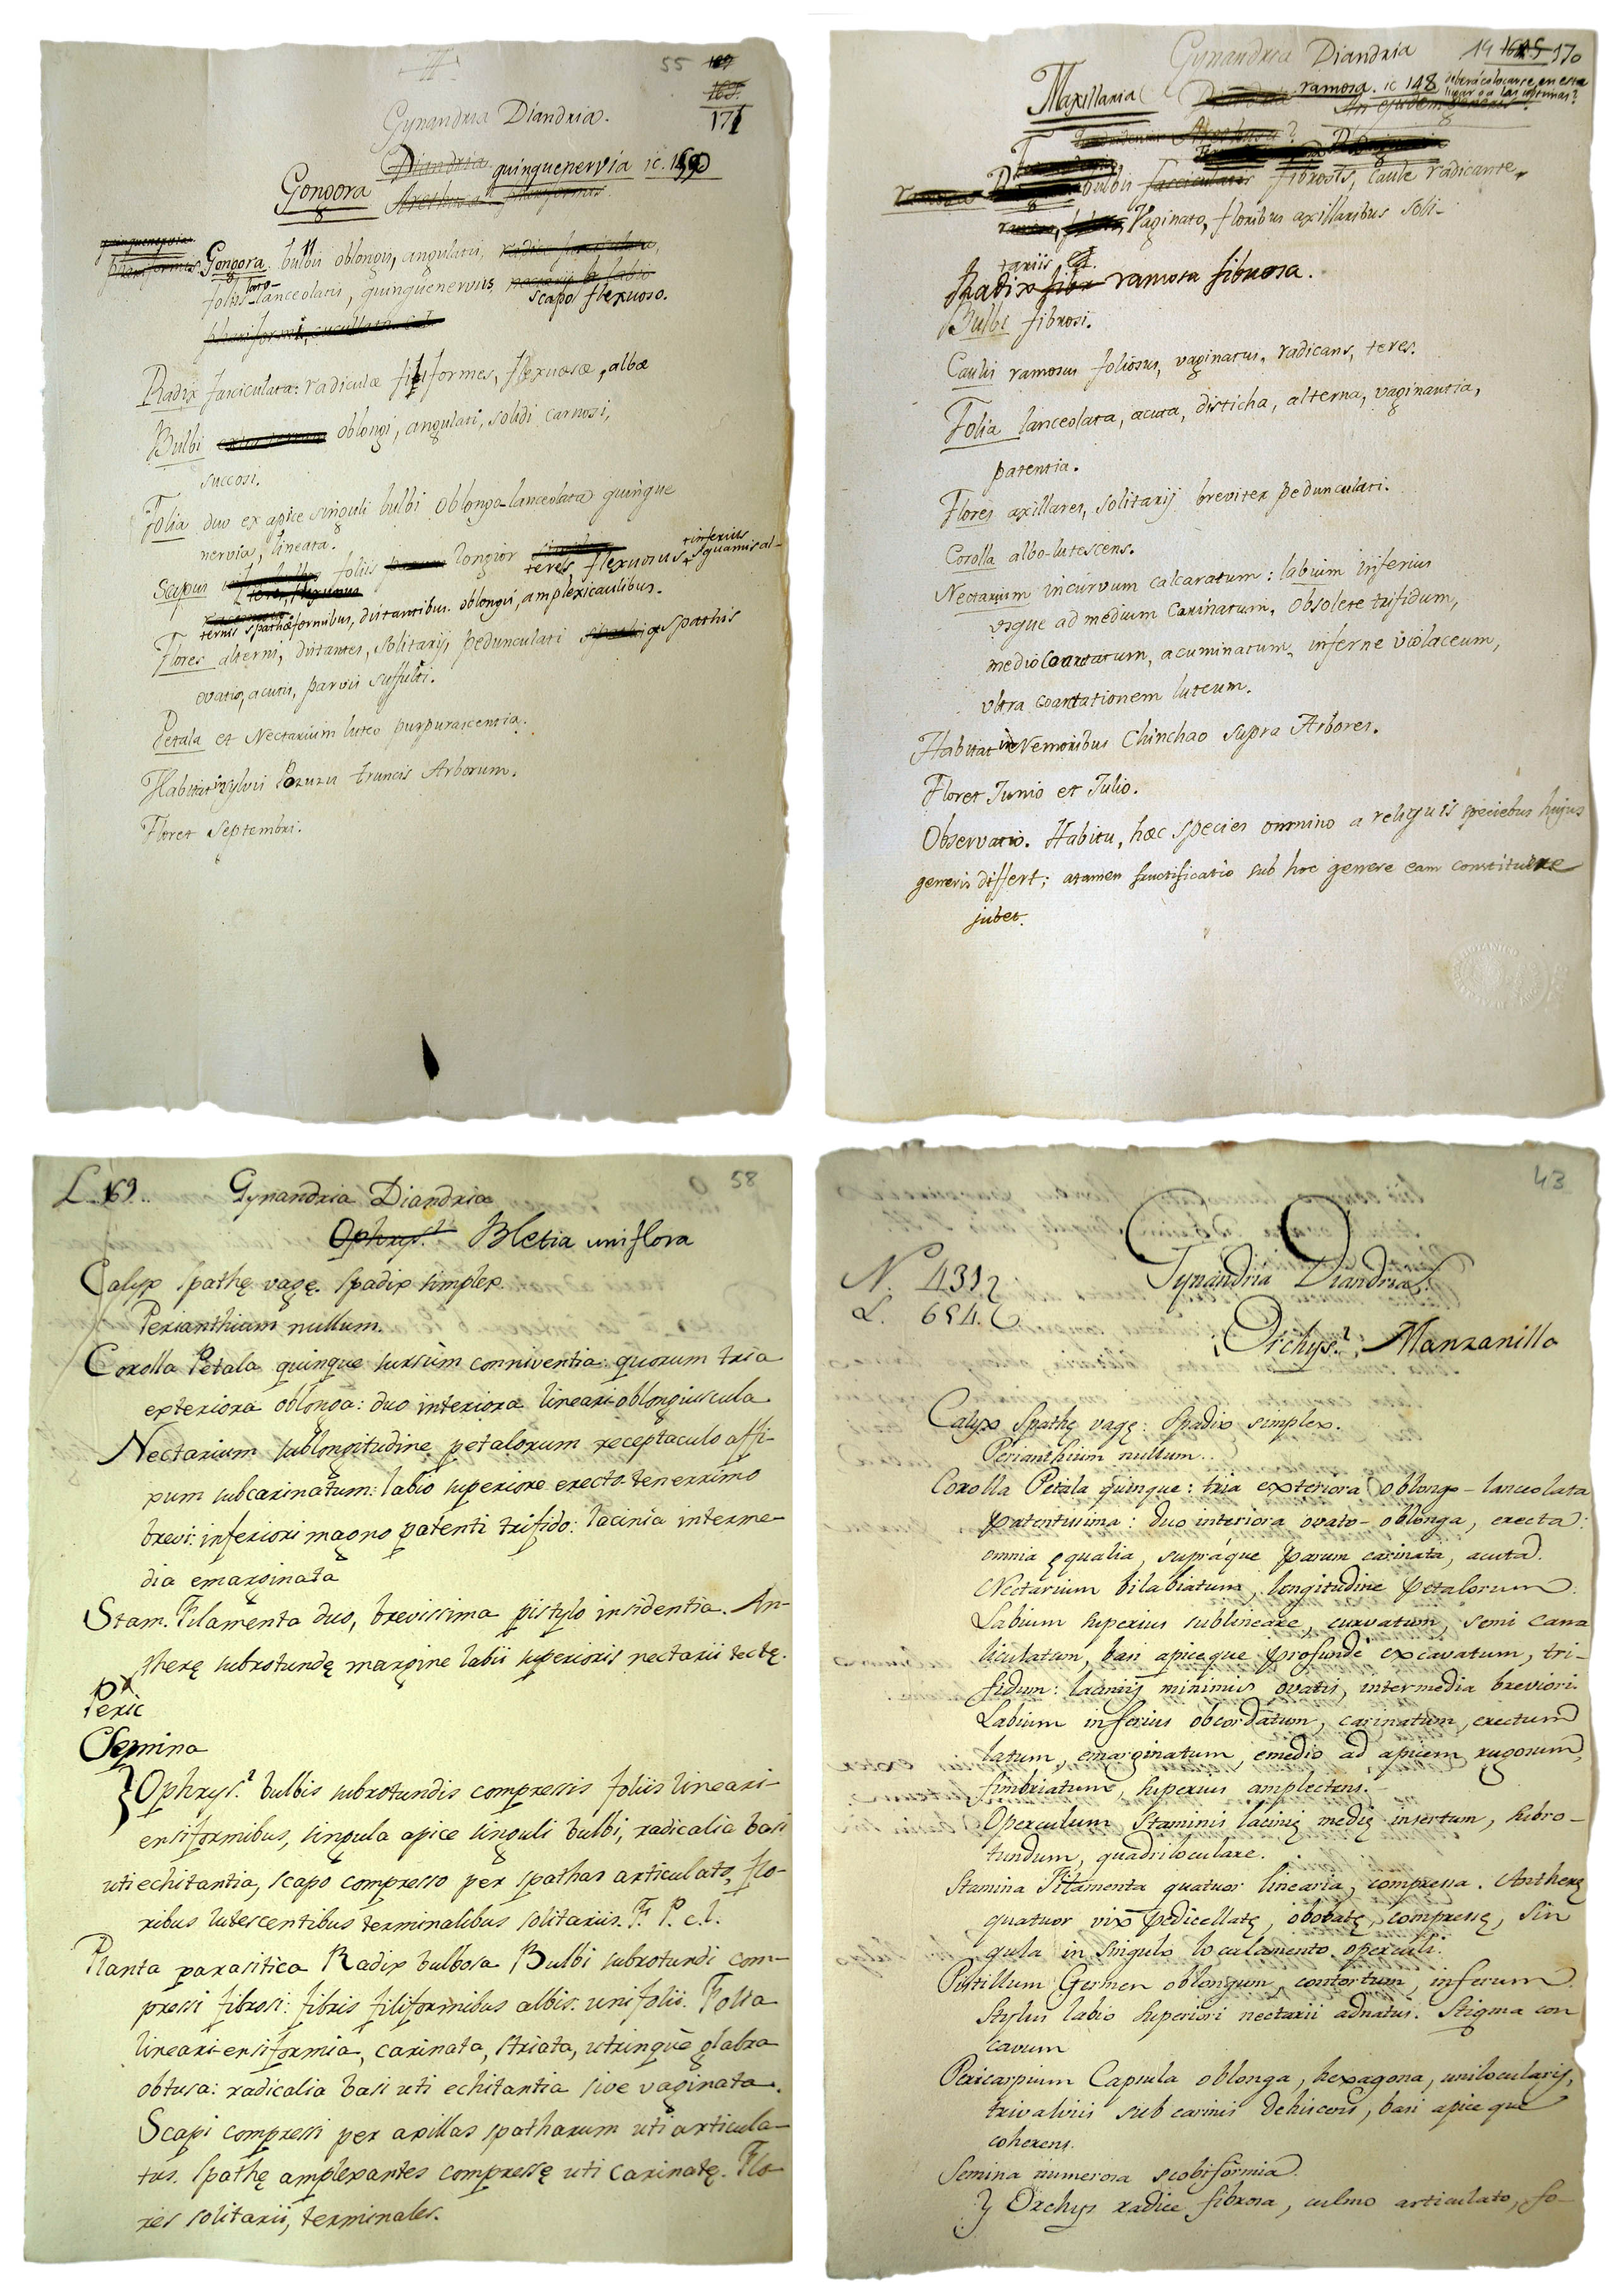 55 169
168.
171
Gynandria Diandria.
Diandria quinquenervia ic. 149
Gongora Arethusa
quinquenervia
Gongora bulbis oblongis, angulatis, radice fasciculata,
foliis lato-lanceolatis, quinquenerviis
scapo flexuoso.
Radix fasciculata: radiculæ filiformes, flexuosæ, albæ
Bulbi oblongi, angulati, solidi carnosi,
succosi.
Folia duo ex apice singuli bulbi oblongo-lanceolata quinque
nervia, lineata.
Scapus foliis longior teres flexuosus + inferius squamis al-
ternis spathæformibus, distantibus. oblongis, amplexicaulibus.
Flores alterni, distantes, solitarij, pedunculati spathis
ovatis, acutis, parvis suffulti.
Petala et Nectarium luteo purpurascentia.
Habitat in sylvis Pozuzu truncis Arborum.
Floret Septembri.
Gynandria Diandria 14 170
Maxillaria ramosa. ic 148 deberá colocarse en este
lugar o a las ultimas?
An ejusdem generis?
bulbis fasciculatis fibrosis, caule radicante,
vaginato, floribus axillaribus soli-
tariis
Radix fibr ramosa fibrosa.
Bulbi fibrosi.
Caulis ramosus foliosus, vaginatus, radicans, teres.
Folia lanceolata, acuta, disticha, alterna, vaginantia,
patentia.
Flores axillares, solitarij breviter pedunculati.
Corolla albo-lutescens.
Nectarium incurvum calcaratum: labium inferius
usque ad medium carinatum, obsolete trifidum,
medio coarctatum, acuminatum, inferne violaceum,
ultra coartationem luteum.
Habitat in Nemoribus Chinchao supra Arbores.
Floret Junio et Julio.
Observatio. Habitu, hæc species omnino a reliquis speciebus hujus
generis differt; atamen fructificatio sub hoc genere eam constituere
jubet.
L. 169. Gynandria Diandria 58
Ophrys? Bletia uniflora
Calyx Spathę vagę. Spadix simplex
Perianthium nullum.
Corolla Petala quinque sursùm conniventia: quorum tria
exteriora oblonga: duo interiora lineari-oblongiuscula
Nectarium sublongitudine petalorum receptaculo affi-
xum subcarinatum: labio superiore erecto tenerrimo
brevi: inferiori magno patenti trifido: lacinia interme-
dia emarginata
Stam. Filamenta duo, brevissima pistylo insidentia. An-
therę subrotundę margine labii superioris nectarii tectę.
Peric
Semina
Ophrys? bulbis subrotundis compressis foliis lineari-
ensiformibus, singula apice singuli bulbi, radicalia basi
uti echitantia, scapo compresso per spathas articulato, flo-
ribus lutescentibus terminalibus solitariis. F. P. c. l.
Planta parasitica Radix bulbosa Bulbi subrotundi com-
pressi fibrosi: fibris filiformibus albis: unifolii. Folia
lineari-ensiformia, carinata, striata, utrinquè glabra
obtusa: radicalia basi uti echitantia sive vaginata.
Scapi compressi per axillas spatharum uti articula-
tus. Spathę amplexantes compressę uti carinatę. Flo-
res solitarii, terminales.
43
Gynandria Diandria.
N. 431
L. 654.
Orchys? Manzanilla
Calyx Spathę vagę: Spadix simplex.
Perianthium nullum.
Corolla Petala quinque: tria exteriora oblongo-lanceolata
patentissima: duo interiora ovato-oblonga, erecta:
omnia ęqualia, supráque parum carinata, acuta.
Nectarium bilabiatum, longitudine petalorum:
Labium superius sublineare, curvatum, semi cana
liculatum, basi apiceque profundè excavatum, tri-
fidum: laciniis minimis ovatis, intermedia breviori.
Labium inferius obcordatum, carinatum, erectum
latum, emarginatum, emedio ad apicem rugosum,
fimbriatum, superius amplectens.
Operculum Staminis lacinię medię insertum, subro-
tundum, quadriloculare.
Stamina Filamenta quatuor linearia, compressa. Antherę
quatuor vix pedicellatę, obobatę, compressę, sin
gula in singulo localamento operculi.
Pistillum Germen oblongum, contortum, inferum
Stylus labio superiori nectarii adnatus. Stigma con
cavum
Pericarpium Capsula oblonga, hexagona, unilocularis,
trivalvis sub carinis dehiscens, basi apice que
coherens.
Semina numerosa scobiformia.
Orchys radice fibrosa, culmo articulato, fo-